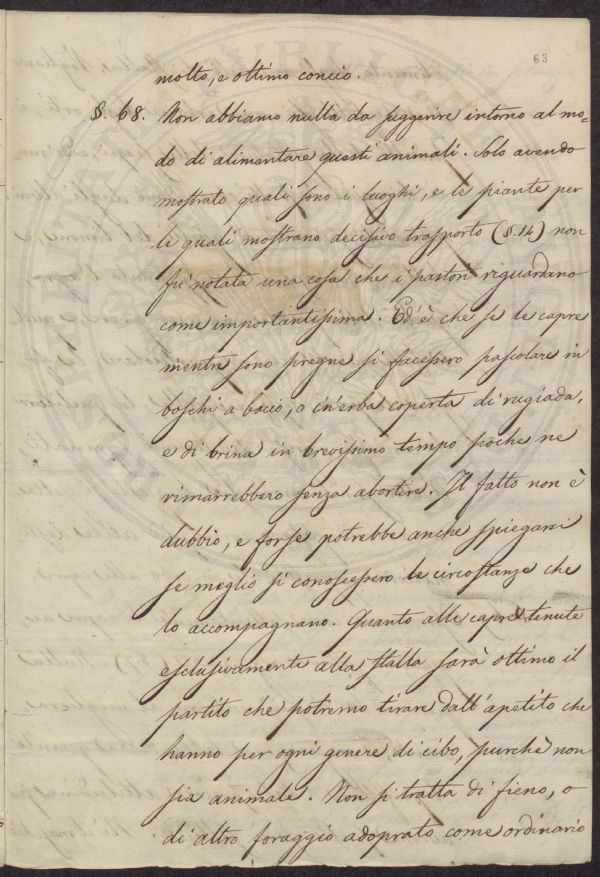 63
molto, e ottimo concio.
§. 68. Non abbiamo nulla da suggerire intorno al mo=
do di alimentare questi animali. Solo avendo
mostrato quali sono i luoghi, e le piante per
le quali mostrano decisivo trasporto (§. 14) non
fu notata una cosa che i pastori riguardano
come importantissima. Ed è che se le capre
mentre sono pregne si facessero pascolare in
boschi a bacìo, o in erba coperta di rugiada,
e di brina in brevissimo tempo poche ne
rimarrebbero senza abortire. Il fatto non è
dubbio, e forse potrebbe anche spiegarsi
se meglio si conoscessero le circostanze che
lo accompagnano. Quanto alle capre tenute
esclusivamente alla stalla sarà ottimo il
partito che potremo tirare dall'apetito che
hanno per ogni genere di cibo, purchè non
sia animale. Non si tratta di fieno, o
di altro foraggio adoprato come ordinario